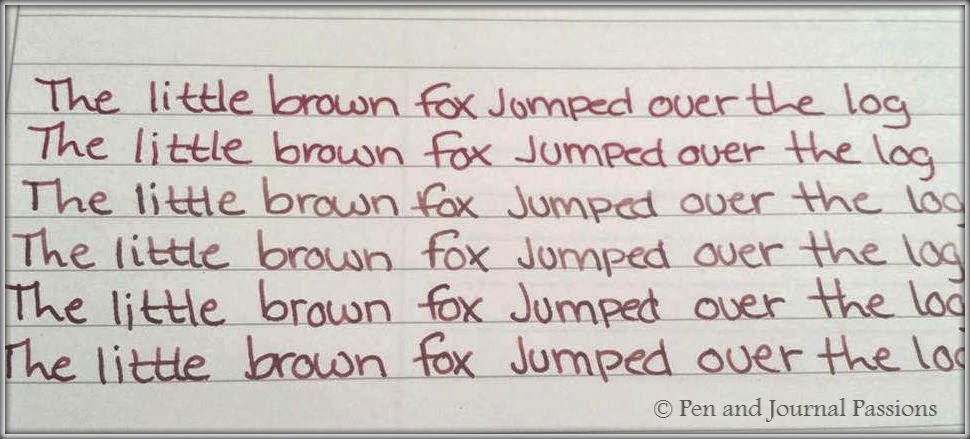 The little brown fox Jumped over the log
The little brown fox Jumped over the log
The little brown fox Jumped over the log
The little brown fox Jumped over the log
The little brown fox Jumped over the log
The little brown fox Jumped over the log
© Pen and Journal Passions